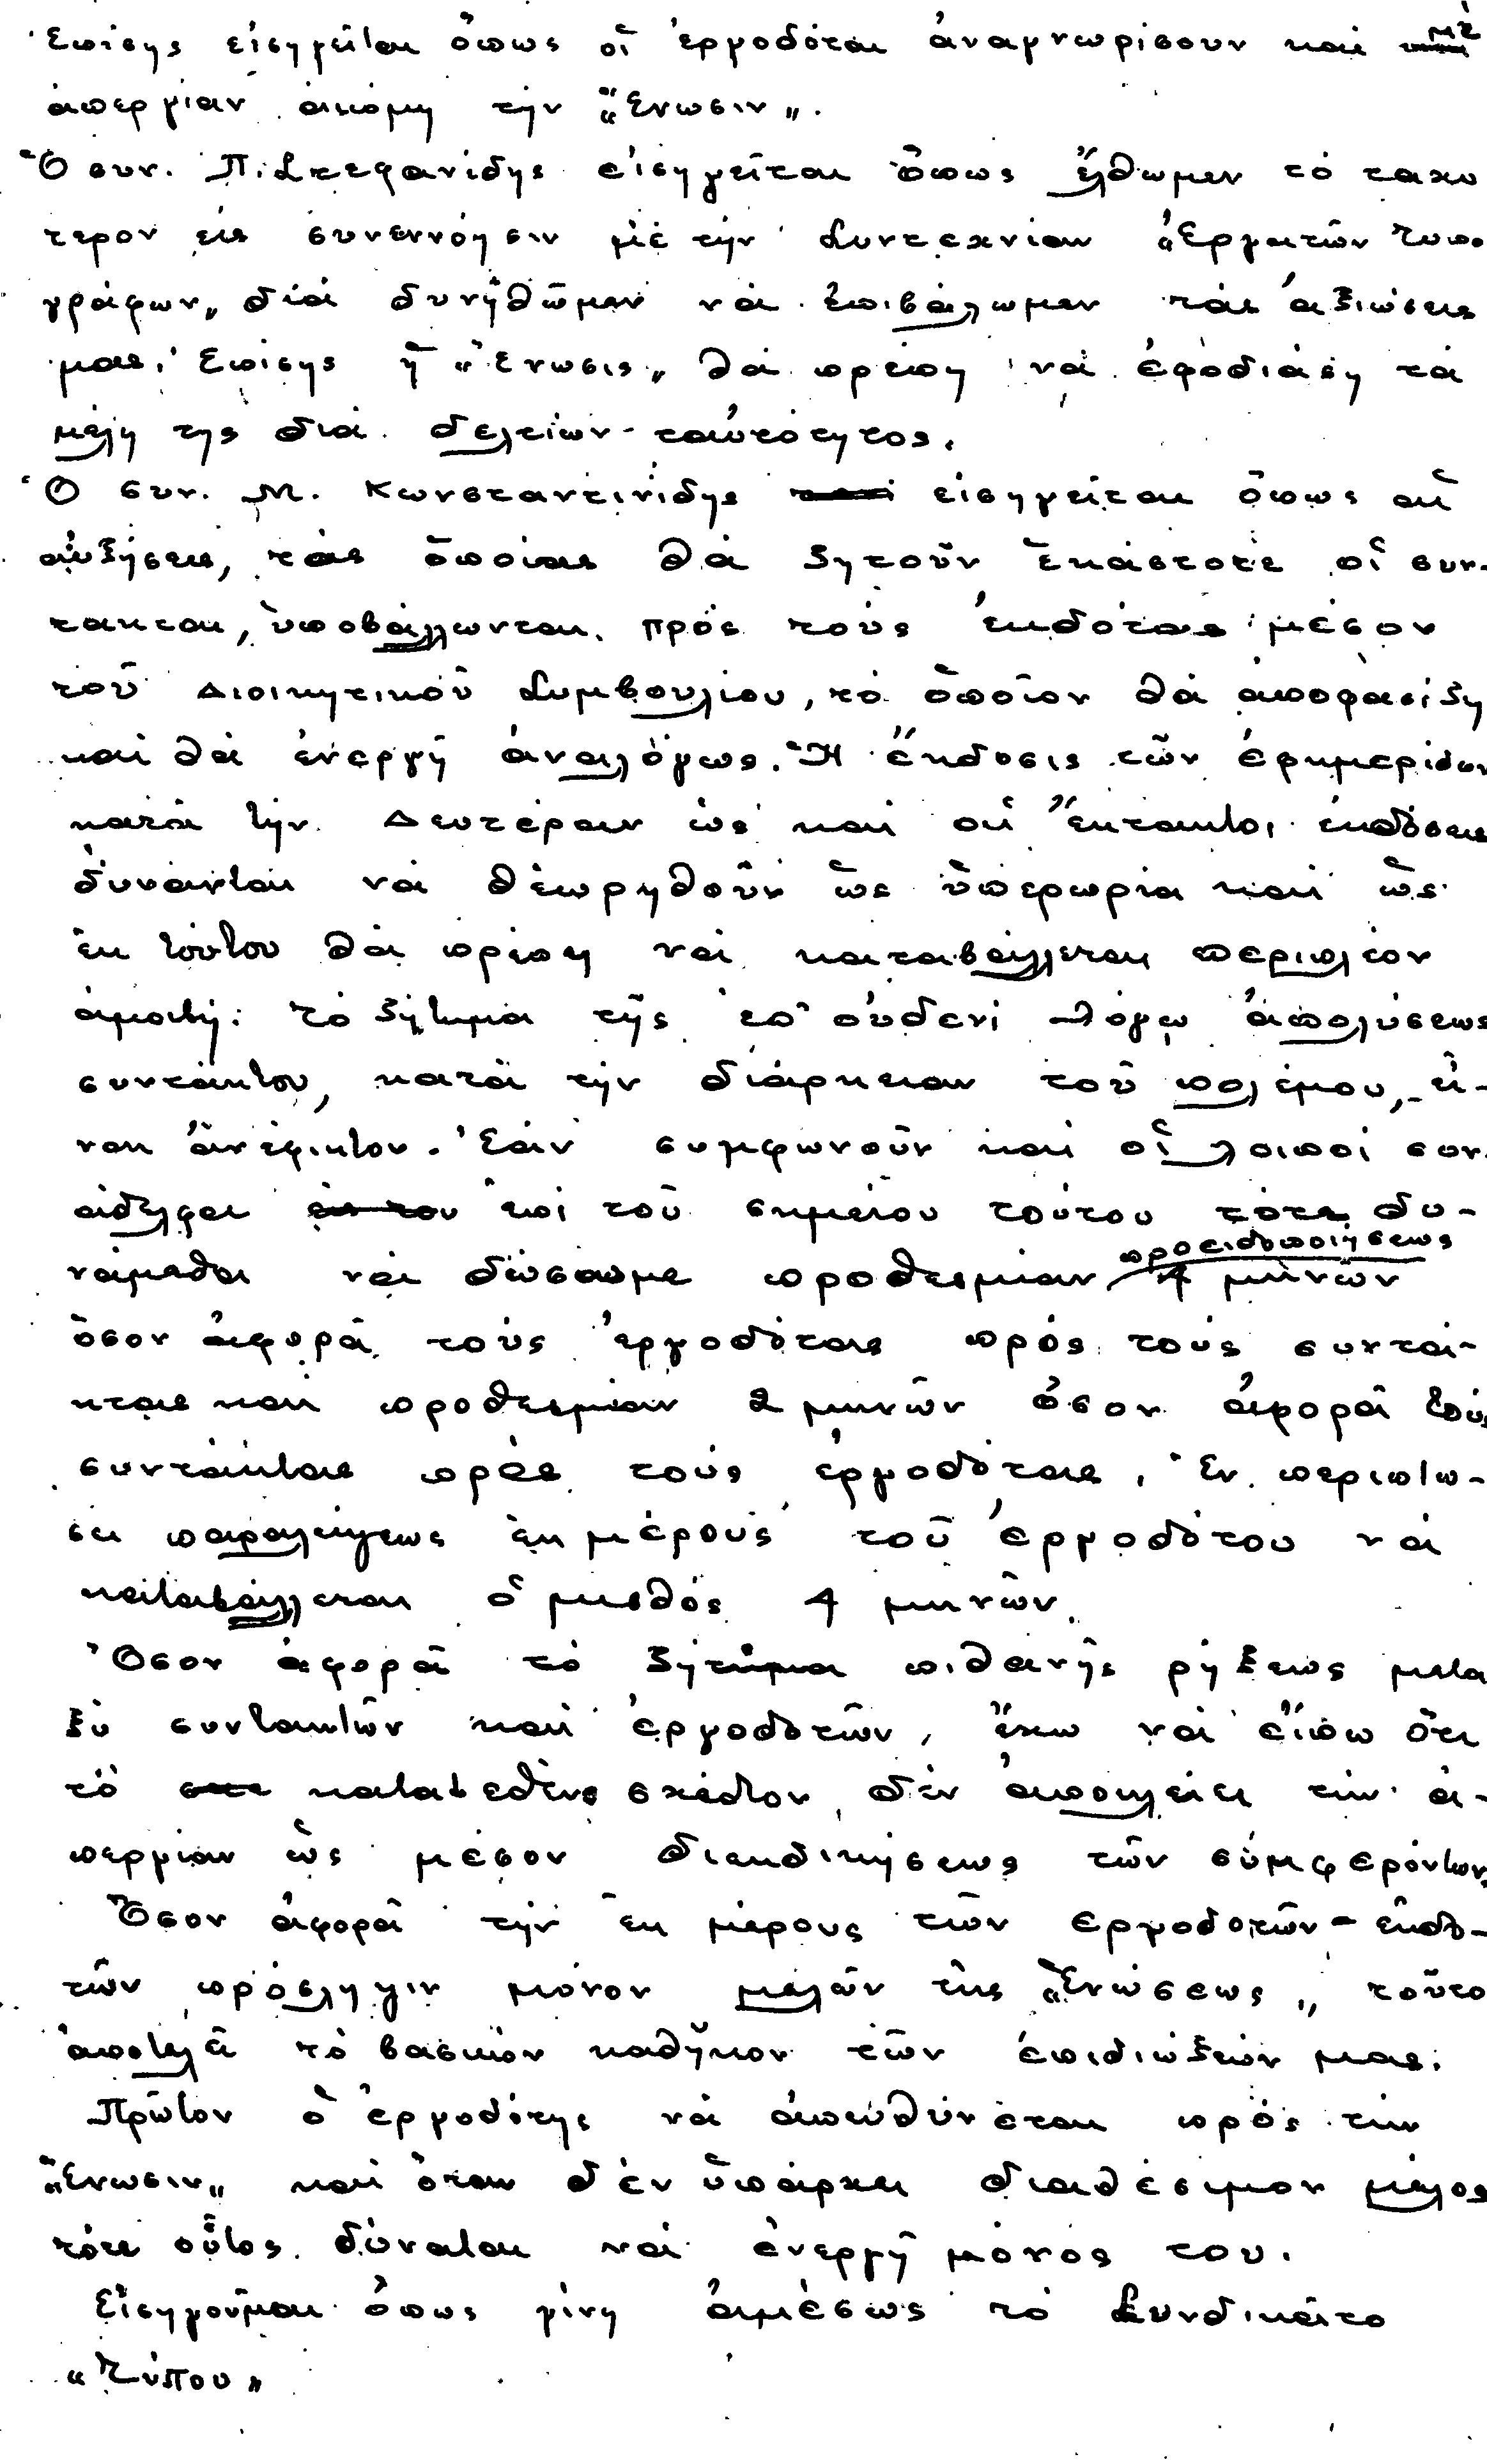 Ἐπίσης εἰσηγεῖται ὅπως οἱ ἐργοδόται ἀναγνωρίσουν καὶ μὲ
ἀπεργίαν ἀκόμη τὴν "Ἕνωσιν".
Ὁ συν. Π. Στεφανίδης εἰσηγεῖται ὅπως ἔλθωμεν τὸ ταχύ
τερον εἰς συνεννόησιν μὲ τὴν Συντεχνίαν "Ἐργατῶν Τυπο
γράφων" διὰ δυνηθῶμεν νὰ ἐπιβάλωμεν τὰς ἀξιώσεις
μας. Ἐπίσης ἡ "Ἕνωσις" θὰ πρέπη νὰ ἐφοδιάση τὰ
μέλη της διὰ δελτίων ταὐτότητος.
Ὁ συν. Μ. Κωνσταντινίδης εἰσηγεῖται ὅπως αἱ
αὐξήσεις, τὰς ὁποίας θὰ ζητοῦν ἑκάστοτε οἱ συν-
τακται, ὑποβάλλωνται πρὸς τοὺς ἐκδότας μέσον
τοῦ Διοικητικοῦ Συμβουλίου, τὸ ὁποῖον θὰ ἀποφασίζη
καὶ θὰ ἐνεργῆ ἀναλόγως. Ἡ ἔκδοσις τῶν ἐφημερίδων
κατὰ τὴν Δευτέραν ὡς καὶ αἱ ἔκτακτοι ἐκδόσεις
δύνανται νὰ θεωρηθοῦν ὡς ὑπερωρία καὶ ὡς
ἐκ τούτου θὰ πρέπη νὰ καταβάλλεται περιπλέον
ἀμοιβή. Τὸ ζήτημα τῆς ἐπ' οὐδενὶ λόγω ἀπολύσεως
συντάκτου, κατὰ τὴν διάρκειαν τοῦ πολέμου, εἶ-
ναι ἀνέφικτον. Ἐὰν συμφωνοῦν καὶ οἱ λοιποὶ συν.
άδελφοι ἐπὶ τοῦ σημείου τούτου τότε δυ-
νάμεθα νὰ δώσωμε προθεσμίαν προειδοποιήσεως 4 μηνῶν
ὅσον ἀφορᾶ τοὺς ἐργοδότας πρὸς τοὺς συντά-
κτας καὶ προθεσμίαν 2 μηνῶν ὅσον ἀφορᾶ τοὺς
συντάκτας πρὸς τοὺς ἐργοδότας. Ἐν περιπτώ-
σει παραλείψεως ἐκ μέρους τοῦ ἐργοδότου νὰ
καταβάλλεται ὁ μισθὸς 4 μηνῶν.
Ὅσον ἀφορᾶ τὸ ζήτημα πιθανῆς ρήξεως μετα
ξὺ συντακτῶν καὶ ἐργοδοτῶν, ἔχω νὰ εἴπω ὅτι
τὸ κατατεθὲν σχέδιον δὲν ἀποκλείει τὴν ἀ-
περγίαν ὡς μέσον διεκδικήσεως τῶν συμφερόντων.
Ὅσον ἀφορᾶ τὴν ἐκ μέρους τῶν ἐργοδοτῶν - ἐκδο-
τῶν πρόσληψιν μόνον μελῶν τῆς "Ἑνώσεως", τοῦτο
ἀποτελεῖ τὸ βασικὸν καθῆκον τῶν ἐπιδιώξεών μας.
Πρῶτον ὁ ἐργοδότης νὰ ἀπευθύνεται πρὸς τὴν
"Ἕνωσιν" καὶ ὅταν δὲν ὑπάρχει διαθέσιμον μέλος
τότε οὗτος δύναται νὰ ἐνεργῆ μόνος του.
Εἰσηγοῦμαι ὅπως γίνη ἀμέσως τὸ Συνδικᾶτο
"Τύπου"